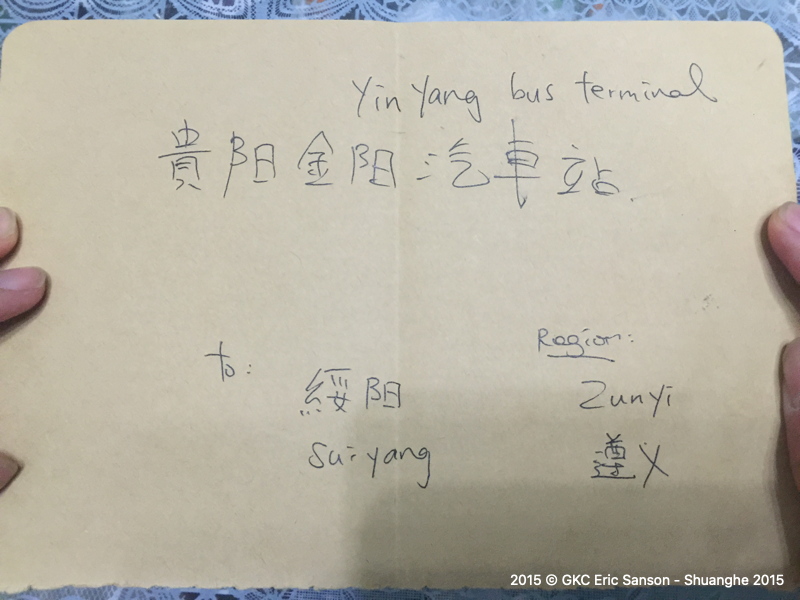 Yin Yang bus terminal
貴阳金阳汽車站.
to:
Region:
綏阳
Zunyi
Sui-yang
遵义
2015 © GKC Eric Sanson - Shuanghe 2015